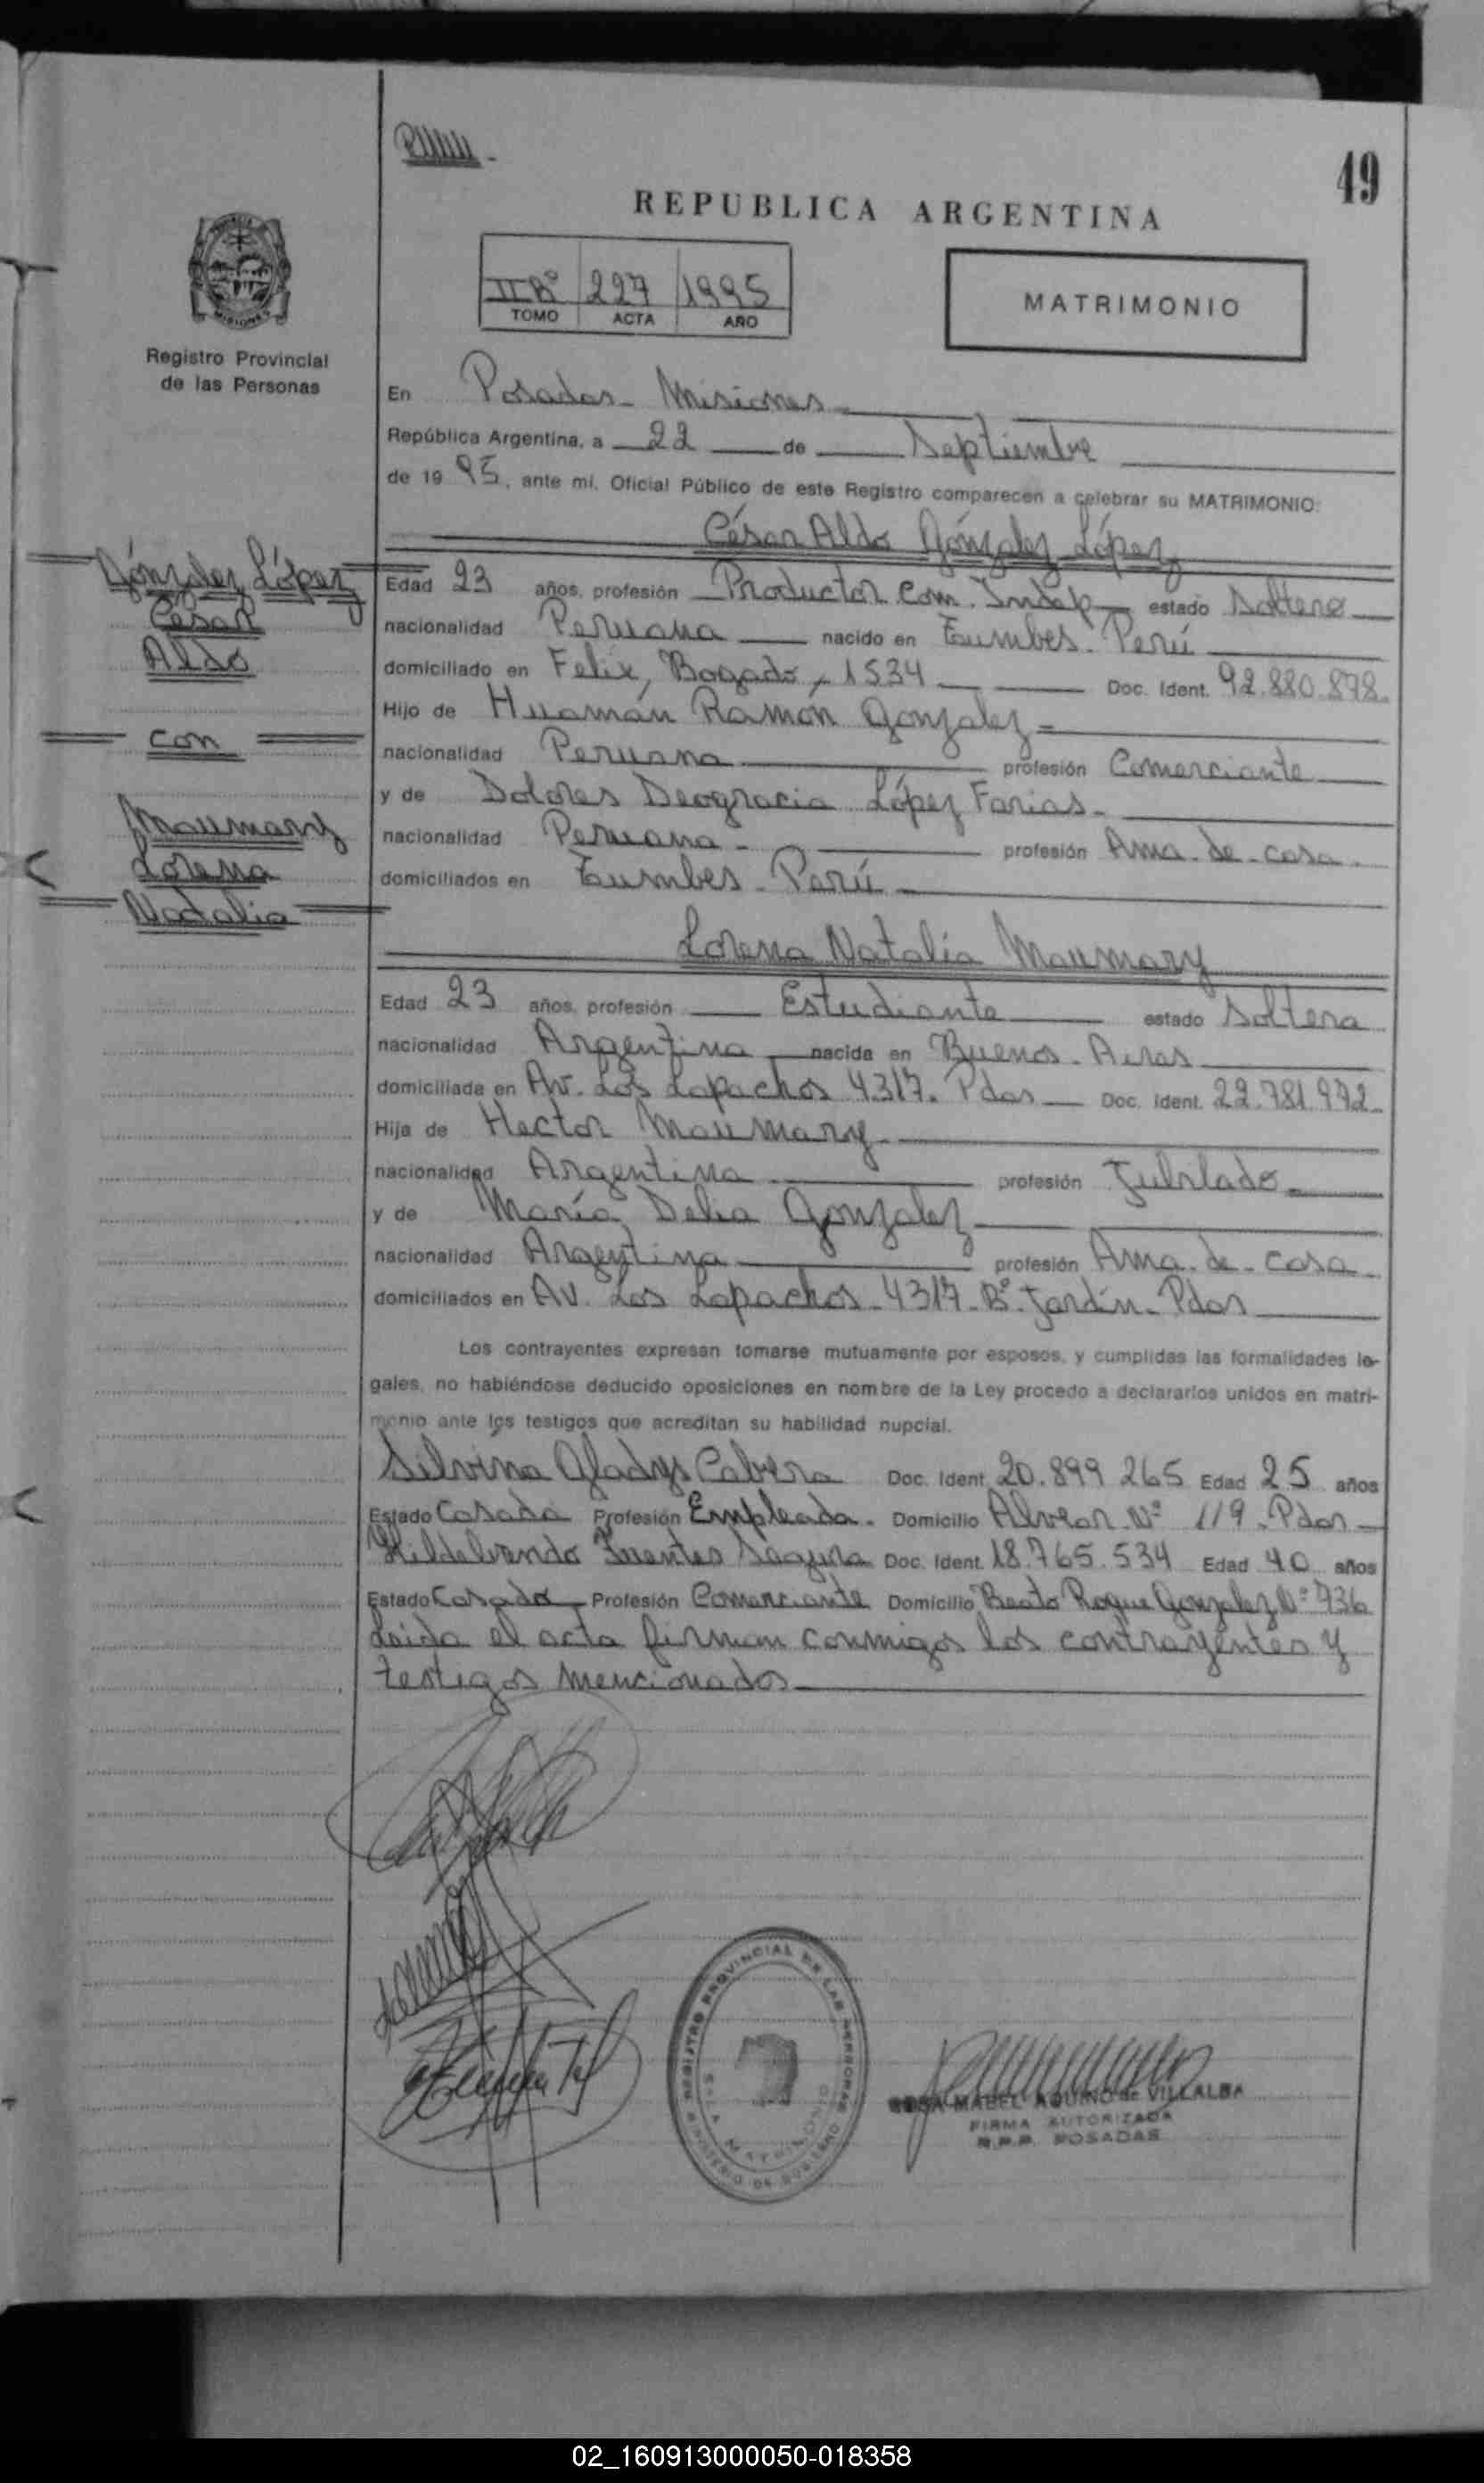 49
REPUBLICA ARGENTINA
II Bº 227 1995
TOMO ACTA AÑO
MATRIMONIO
Registro Provincial
de las Personas
En Posadas - Misiones
República Argentina, a 22 de Septiembre
de 1995, ante mí, Oficial Público de este Registro comparecen a celebrar su MATRIMONIO:
César Aldo Gónzalez López
Gónzalez López
César
Aldo
con
Maumary
Lorena
Natalia
Edad 23 años, profesión Productor Com. Indep estado Soltero
nacionalidad Peruana nacido en Tumbes - Perú
domiciliado en Felix Bogado, 1534 Doc. Ident. 92.880.898
Hijo de Huamán Ramón Gonzalez
nacionalidad Peruana profesión Comerciante
y de Dolores Deogracia López Farias
nacionalidad Peruana profesión Ama-de-casa
domiciliados en Tumbes - Perú
Lorena Natalia Maumary
Edad 23 años, profesión Estudiante estado Soltera
nacionalidad Argentina nacida en Buenos - Aires
domiciliada en Av. Los Lapachos 4317. Pdas Doc. Ident. 22.781.972
Hija de Hector Maumary
nacionalidad Argentina profesión Jubilado
y de María Delia Gonzalez
nacionalidad Argentina profesión Ama-de-casa
domiciliados en Av. Los Lapachos - 4317 - Bº Jardín - Pdas
Los contrayentes expresan tomarse mutuamente por esposos, y cumplidas las formalidades le-
gales, no habiéndose deducido oposiciones en nombre de la Ley procedo a declararlos unidos en matri-
monio ante los testigos que acreditan su habilidad nupcial.
Silvina Gladys Cabrera Doc. Ident. 20.899.265 Edad 25 años
Estado Casada Profesión Empleada - Domicilio Alvear Nº 119 - Pdas
Hildebrando Fuentes Segura Doc. Ident. 18.765.534 Edad 40 años
Estado Casado Profesión Comerciante Domicilio Beato Roque Gonzalez Nº 936
Leida el acta firman conmigos los contrayentes y
testigos mencionados
REGISTRO PROVINCIAL DE LAS PERSONAS
SALA MATRIMONIO
MINISTERIO DE GOBIERNO
ROSA MABEL AQUINO de VILLALBA
FIRMA AUTORIZADA
R.P.P. POSADAS
02_160913000050-018358